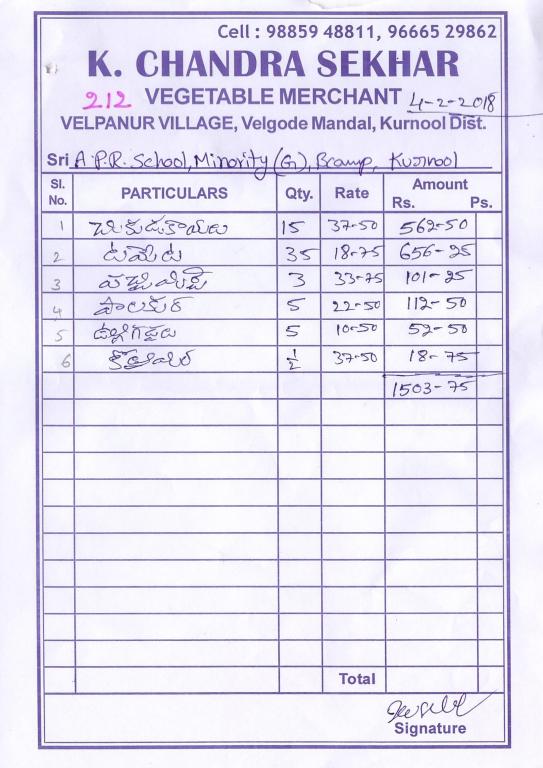 Cell : 98859 48811, 96665 29862
K. CHANDRA SEKHAR
212 VEGETABLE MERCHANT 4-2-2018
VELPANUR VILLAGE, Velgode Mandal, Kurnool Dist.
Sri A.P.R. School, Minority (G), Bcamp, Kurnool
Sl. No. PARTICULARS Qty. Rate Amount Rs. Ps.
1 చిక్కుడుకాయలు 15 37-50 562-50
2 టమోట 35 18-75 656-25
3 పచ్చిమిర్చి 3 33-75 101-25
4 పాలకుర 5 22-50 112-50
5 ఉల్లిగడ్డలు 5 10-50 52-50
6 కొత్తిమీర ½ 37-50 18-75
1503-75
Total
Signature